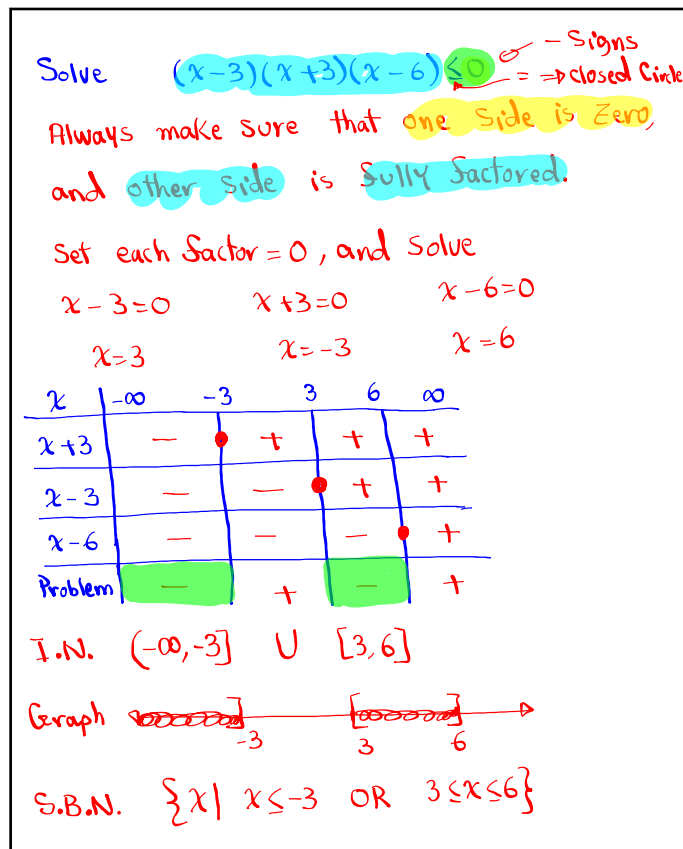 Solve (x-3)(x+3)(x-6) ≤ 0 - Signs
= ⇒ closed Circle
Always make sure that one side is Zero,
and other side is fully factored.
Set each factor = 0, and solve
x-3=0 x+3=0 x-6=0
x=3 x=-3 x=6
x -∞ -3 3 6 ∞
x+3 - + + +
x-3 - - + +
x-6 - - - +
Problem - + - +
I.N. (-∞,-3] U [3,6]
Graph ] [ ]
-3 3 6
S.B.N. {x| x≤-3 OR 3≤x≤6}